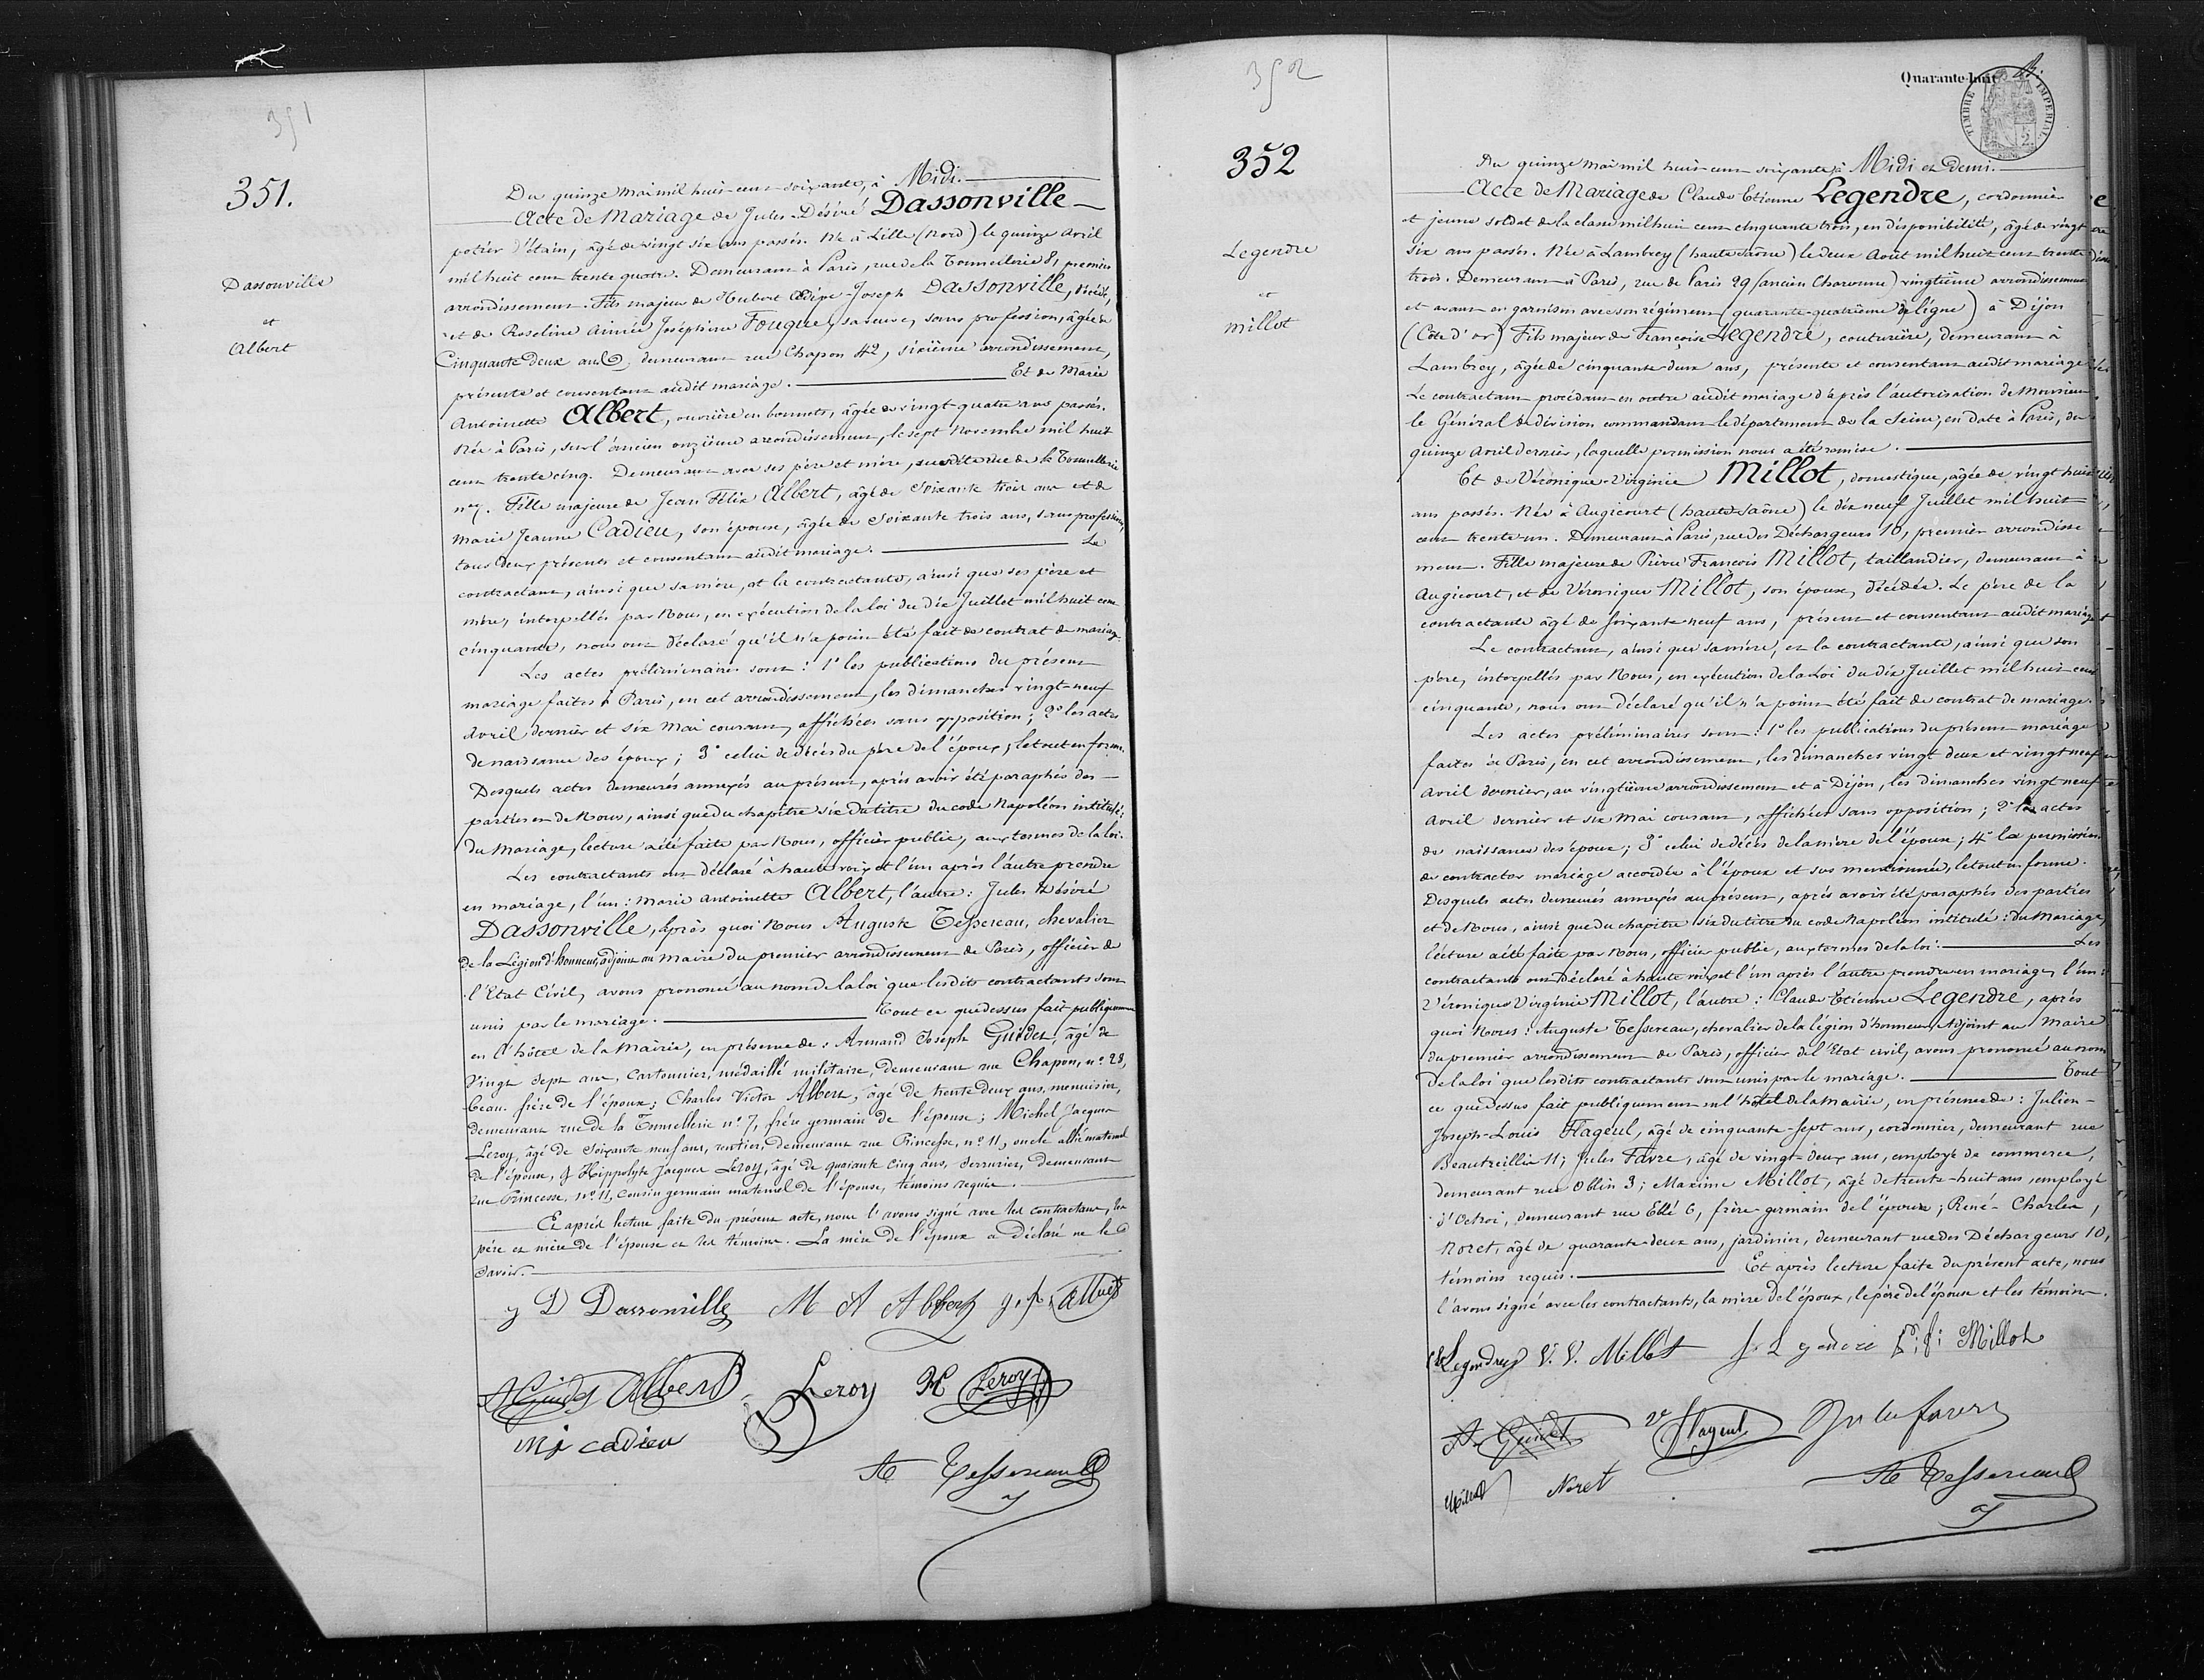 351
351.
Dassonville
et
Albert
Du quinze mai mil huit cent soixante, à Midi.
Acte de Mariage de Jules Désiré Dassonville
potier d'étain, âgé de vingt six ans passés. Né à Lille (Nord) le quinze avril
mil huit cent trente quatre. Demeurant à Paris, rue de la Tonnellerie 8, premier
arrondissement. Fils majeur de Hubert Joseph Dassonville, décédé,
et de Roseline Aimée Joséphine Fouque, sa veuve, sans profession, âgée de
Cinquante deux ans, demeurant rue Chapon 42, sixième arrondissement,
présente et consentant audit mariage. Et de Marie
Antoinette Albert, ouvrière en bonnets, âgée de vingt-quatre ans passés.
Née à Paris, sur l'ancien onzième arrondissement, le sept Novembre mil huit
cent trente cinq. Demeurant avec ses père et mère, susdite rue de la Tonnellerie
n° 7. Fille majeure de Jean Félix Albert, âgé de soixante trois ans et de
Marie Jeanne Cadieu, son épouse, âgée de soixante trois ans, sans profession,
tous deux présents et consentant audit mariage. Le
contractant, ainsi que sa mère, et la contractante, ainsi que ses père et
mère, interpellés par Nous, en exécution de la loi du dix Juillet mil huit cent
cinquante, nous ont déclaré qu'il n'a point été fait de contrat de mariage.
Les actes préliminaires sont: 1° les publications du présent
mariage faites à Paris, en cet arrondissement, les dimanches vingt-neuf
Avril dernier et six Mai courant, affichées sans opposition; 2° les actes
de naissance des époux; 3° celui de décès du père de l'époux; le tout en forme.
Desquels actes demeurés annexés au présent, après avoir été paraphés des
parties et de Nous, ainsi que du chapitre six du titre du code Napoléon intitulé:
du Mariage, lecture a été faite par Nous, officier public, aux termes de la loi.
Les contractants ont déclaré à haute voix et l'un après l'autre prendre
en mariage, l'un: Marie Antoinette Albert, l'autre: Jules Désiré
Dassonville, après quoi Nous Auguste Tessereau, chevalier
de la Légion d'honneur, adjoint au Maire du premier arrondissement de Paris, officier de
l'Etat Civil, avons prononcé au nom de la loi que lesdits contractants sont
unis par le mariage. Tout ce que dessus fait publiquement
en l'hôtel de la Mairie, en présence de: Armand Joseph Guidez, âgé de
Vingt sept ans, Cartonnier, médaillé militaire, demeurant rue Chapon, n° 28,
beau-frère de l'époux; Charles Victor Albert, âgé de trente deux ans, menuisier,
demeurant rue de la Tonnellerie n° 7, frère germain de l'épouse; Michel Jacques
Leroy, âgé de soixante neuf ans, rentier, demeurant rue Princesse, n° 11, oncle allié maternel
de l'épouse, & Hippolyte Jacques Leroy, âgé de quarante cinq ans, serrurier, demeurant
rue Princesse, n° 11, cousin germain maternel de l'épouse, témoins requis.
Et après lecture faite du présent acte, nous l'avons signé avec les contractants, les
père et mère de l'épouse et les témoins. La mère de l'époux a déclaré ne le
savoir.
J D Dassonville M A Albert J. f. Albert
A Guidez Albert Leroy H Leroy
M J cadieu
Ate Tessereau
352
352
Legendre
et
Millot
Quarante-huit
TIMBRE IMPERIAL
Du quinze Mai mil huit cent soixante, à Midi et Demi.
Acte de Mariage de Claude Etienne Legendre, cordonnier
et jeune soldat de la classe mil huit cent cinquante trois, en disponibilité, âgé de vingt
six ans passés. Né à Lambrey (haute Saône) le deux Août mil huit cent trente
trois. Demeurant à Paris, rue de Paris 29 (ancien Charonne) vingtième arrondissement
et avant en garnison avec son régiment (quarante-quatrième de ligne) à Dijon
(Côte d'or) Fils majeur de Françoise Legendre, couturière, demeurant à
Lambrey, âgée de cinquante deux ans, présente et consentant audit mariage
Le contractant procédant en outre audit mariage d'après l'autorisation de Monsieur
le Général de division commandant le département de la Seine, en date à Paris, du
quinze avril dernier, laquelle permission nous a été remise.
Et de Véronique-Virginie Millot, domestique, âgée de vingt huit
ans passés. Née à Augicourt (haute-Saône) le dix neuf Juillet mil huit
cent trente un. Demeurant à Paris, rue des Déchargeurs 10, premier arrondisse
ment. Fille majeure de Pierre François Millot, taillandier, demeurant à
Augicourt, et de Véronique Millot, son épouse, décédée. Le père de la
contractante âgé de soixante neuf ans, présent et consentant audit mariage
Le contractant, ainsi que sa mère, et la contractante, ainsi que son
père, interpellés par Nous, en exécution de la Loi du dix Juillet mil huit cent
cinquante, nous ont déclaré qu'il n'a point été fait de contrat de mariage.
Les actes préliminaires sont: 1° les publications du présent mariage
faites à Paris, en cet arrondissement, les dimanches vingt deux et vingt neuf
Avril dernier, au vingtième arrondissement et à Dijon, les dimanches vingt neuf
avril dernier et six Mai courant, affichées sans opposition; 2° les actes
de naissance des époux; 3° celui de décès de la mère de l'épouse; 4° la permission
de contracter mariage accordée à l'époux et sus mentionnée, le tout en forme.
Desquels actes demeurés annexés au présent, après avoir été paraphés des parties
et de Nous, ainsi que du chapitre six du titre du code Napoléon intitulé: du Mariage,
lecture a été faite par Nous, officier public, aux termes de la loi. Les
contractants ont déclaré à haute voix et l'un après l'autre prendre en mariage, l'un:
Véronique Virginie Millot, l'autre: Claude Etienne Legendre, après
quoi Nous: Auguste Tessereau, chevalier de la légion d'honneur, Adjoint au Maire
du premier arrondissement de Paris, officier de l'Etat civil, avons prononcé au nom
de la loi que lesdits contractants sont unis par le mariage. Tout
ce que dessus fait publiquement en l'hôtel de la Mairie, en présence de: Julien-
Joseph-Louis Flageul, âgé de cinquante-sept ans, cordonnier, demeurant rue
Beautreillis 11; Jules Favre, âgé de vingt-deux ans, employé de commerce,
demeurant rue Oblin 3; Maxime Millot, âgé de trente-huit ans, employé
d'Octroi, demeurant rue Eblé 6, frère germain de l'épouse; René-Charles,
Noret, âgé de quarante-deux ans, jardinier, demeurant rue des Déchargeurs 10,
témoins requis. Et après lecture faite du présent acte, nous
l'avons signé avec les contractants, la mère de l'époux, le père de l'épouse et les témoins.
Legendre V. V. Millot f Legendre P. f. Millot
A Guidez Flageul Jules favre
Millot Noret Ate Tessereau